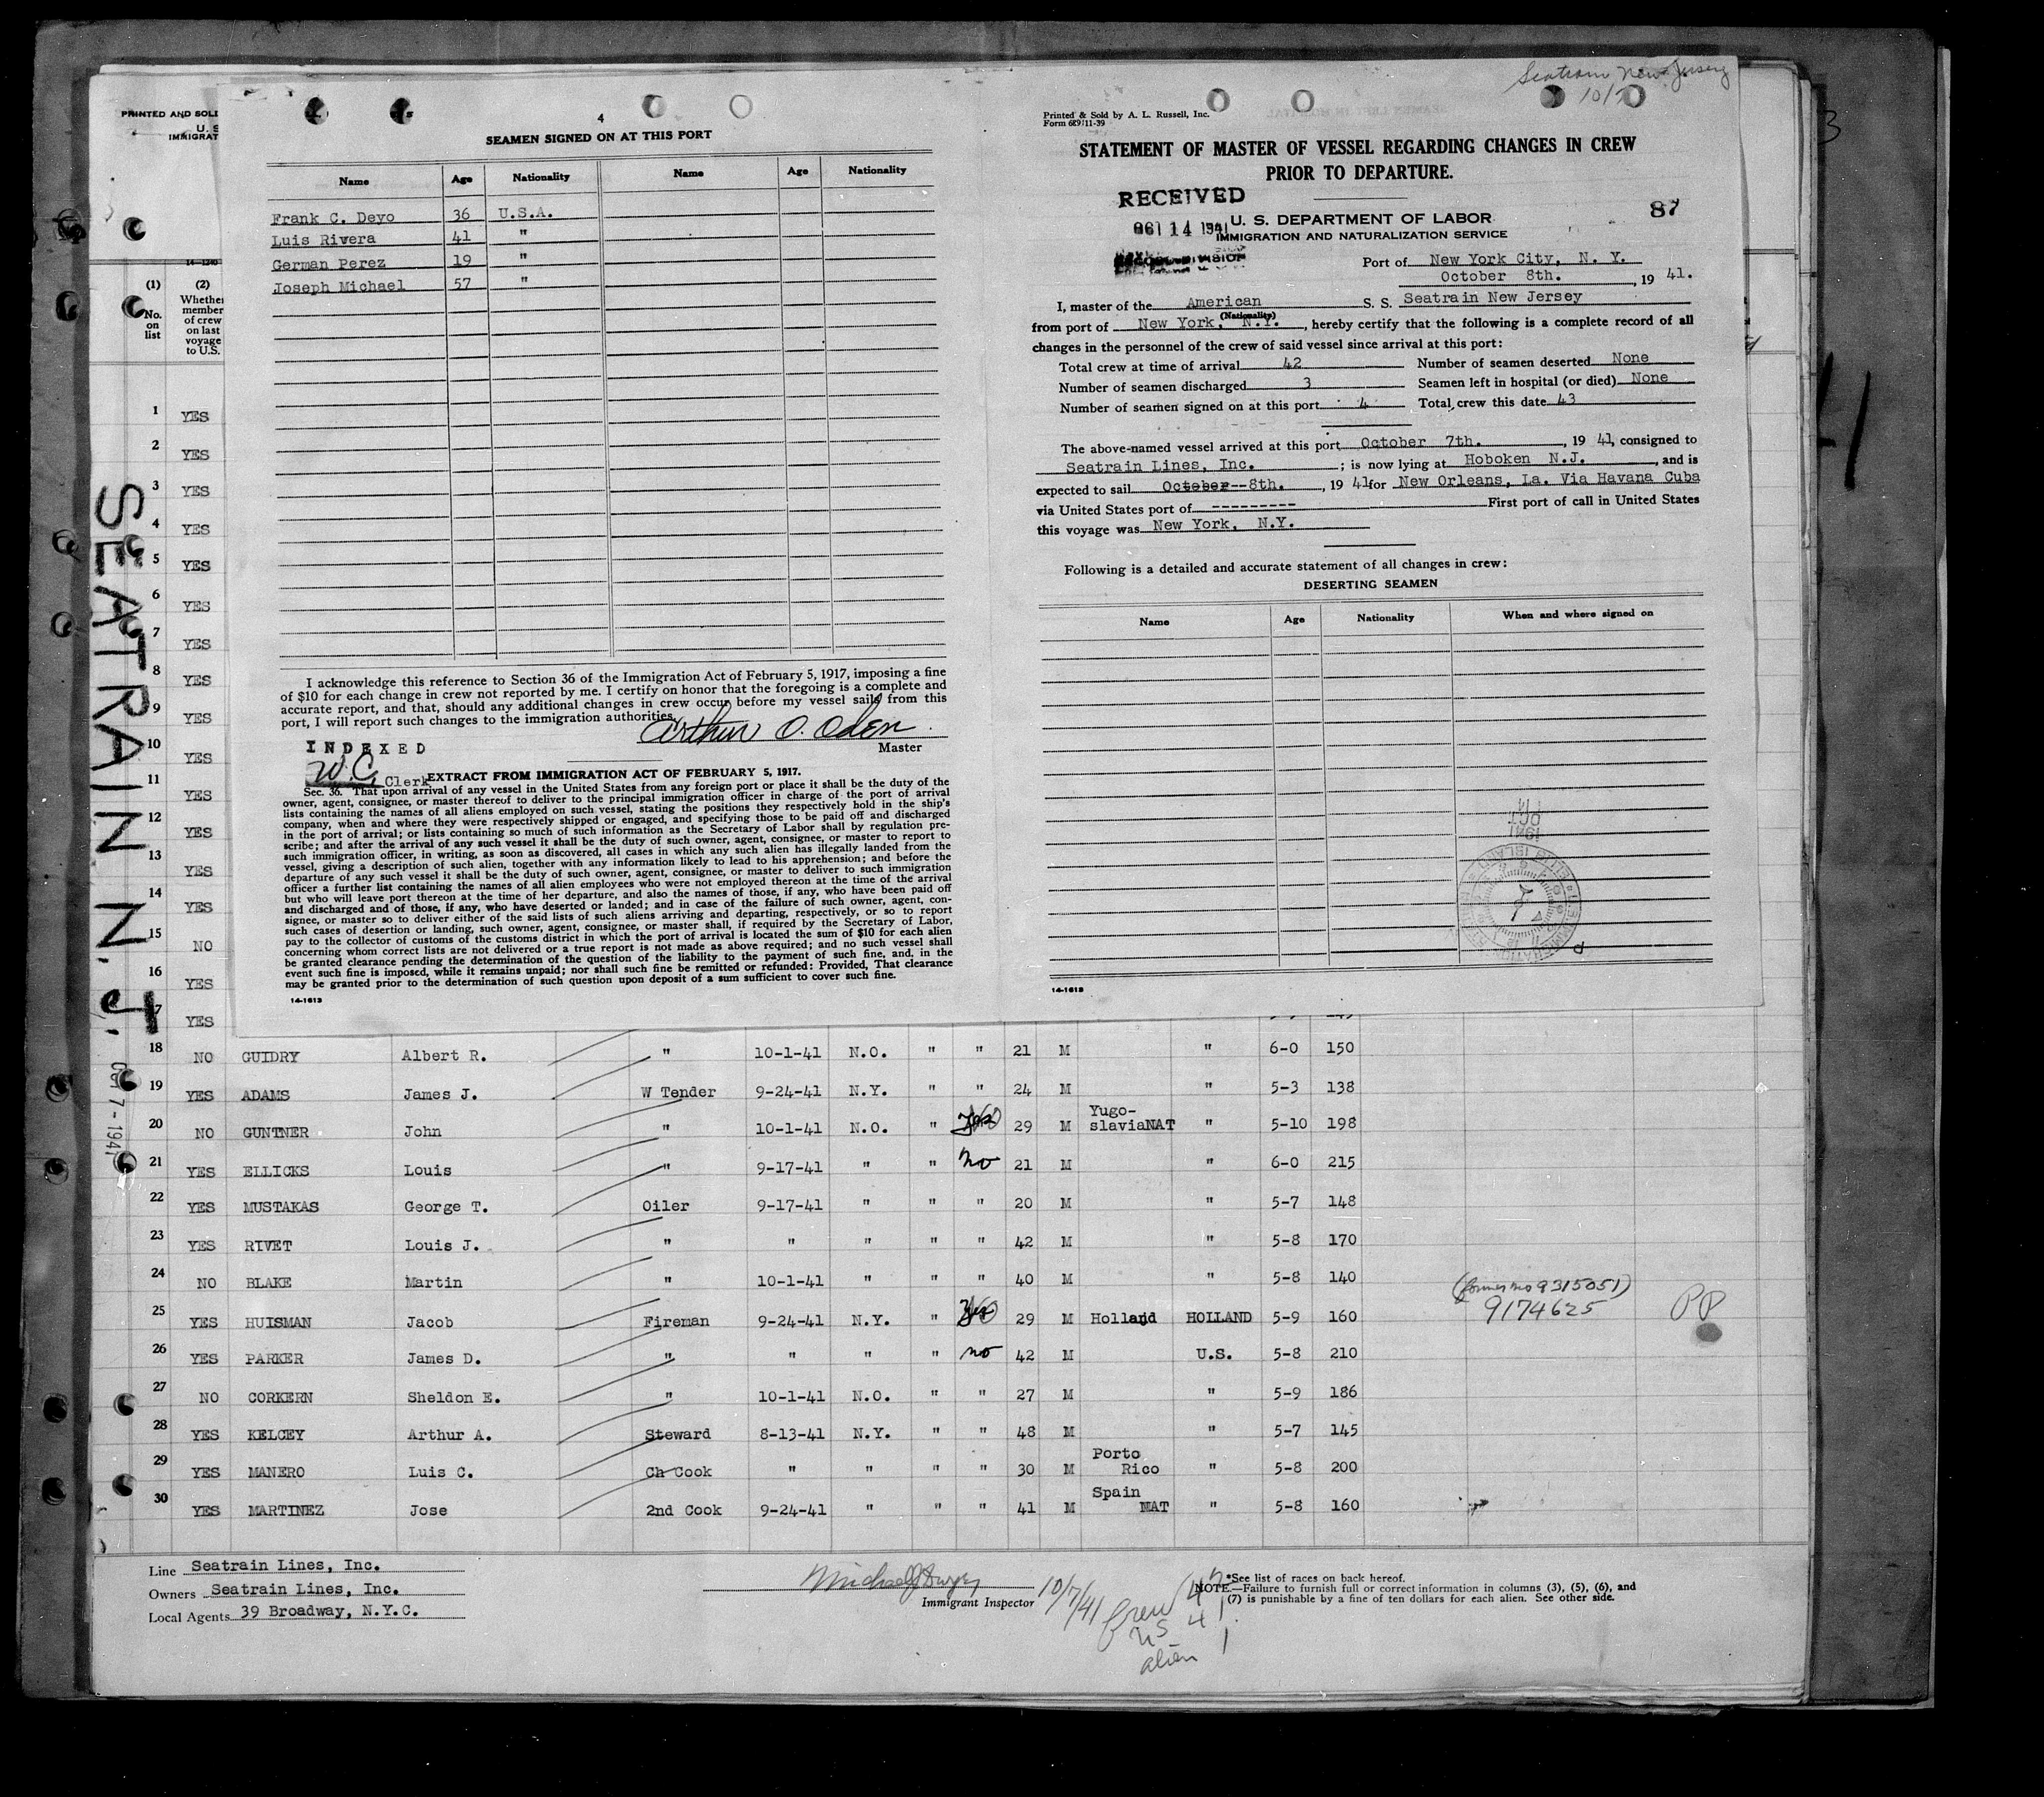 Seatrain New Jersey
10/7
PRINTED AND SOLD
U. S
IMMIGRAT
4
SEAMEN SIGNED ON AT THIS PORT
Name Age Nationality Name Age Nationality
Frank C. Deyo 36 U.S.A.
Luis Rivera 41 "
German Perez 19 "
Joseph Michael 57 "
I acknowledge this reference to Section 36 of the Immigration Act of February 5, 1917, imposing a fine
of $10 for each change in crew not reported by me. I certify on honor that the foregoing is a complete and
accurate report, and that, should any additional changes in crew occur before my vessel sails from this
port, I will report such changes to the immigration authorities.
Arthur O. Oden
Master
INDEXED
W.C. Clerk
EXTRACT FROM IMMIGRATION ACT OF FEBRUARY 5, 1917.
Sec. 36. That upon arrival of any vessel in the United States from any foreign port or place it shall be the duty of the
owner, agent, consignee, or master thereof to deliver to the principal immigration officer in charge of the port of arrival
lists containing the names of all aliens employed on such vessel, stating the positions they respectively hold in the ship's
company, when and where they were respectively shipped or engaged, and specifying those to be paid off and discharged
in the port of arrival; or lists containing so much of such information as the Secretary of Labor shall by regulation pre-
scribe; and after the arrival of any such vessel it shall be the duty of such owner, agent, consignee, or master to report to
such immigration officer, in writing, as soon as discovered, all cases in which any such alien has illegally landed from the
vessel, giving a description of such alien, together with any information likely to lead to his apprehension; and before the
departure of any such vessel it shall be the duty of such owner, agent, consignee, or master to deliver to such immigration
officer a further list containing the names of all alien employees who were not employed thereon at the time of the arrival
but who will leave port thereon at the time of her departure, and also the names of those, if any, who have been paid off
and discharged and of those, if any, who have deserted or landed; and in case of the failure of such owner, agent, con-
signee, or master so to deliver either of the said lists of such aliens arriving and departing, respectively, or so to report
such cases of desertion or landing, such owner, agent, consignee, or master shall, if required by the Secretary of Labor,
pay to the collector of customs of the customs district in which the port of arrival is located the sum of $10 for each alien
concerning whom correct lists are not delivered or a true report is not made as above required; and no such vessel shall
be granted clearance pending the determination of the question of the liability to the payment of such fine, and, in the
event such fine is imposed, while it remains unpaid; nor shall such fine be remitted or refunded: Provided, That clearance
may be granted prior to the determination of such question upon deposit of a sum sufficient to cover such fine.
14-1613
Printed & Sold by A. L. Russell, Inc.
Form 689 11-39
STATEMENT OF MASTER OF VESSEL REGARDING CHANGES IN CREW
PRIOR TO DEPARTURE.
RECEIVED
OCT 14 1941
87
U. S. DEPARTMENT OF LABOR
IMMIGRATION AND NATURALIZATION SERVICE
Port of New York City, N. Y.
October 8th. , 19 41.
I, master of the American S. S. Seatrain New Jersey
(Nationality)
from port of New York, N.Y. , hereby certify that the following is a complete record of all
changes in the personnel of the crew of said vessel since arrival at this port:
Total crew at time of arrival 42 Number of seamen deserted None
Number of seamen discharged 3 Seamen left in hospital (or died) None
Number of seamen signed on at this port 4 Total crew this date 43
The above-named vessel arrived at this port October 7th. , 19 41, consigned to
Seatrain Lines, Inc. ; is now lying at Hoboken N.J. , and is
expected to sail October--8th. , 19 41 for New Orleans, La. Via Havana Cuba
via United States port of --------- First port of call in United States
this voyage was New York, N.Y.
Following is a detailed and accurate statement of all changes in crew:
DESERTING SEAMEN
Name Age Nationality When and where signed on
14-1613
14-1240
(1) (2)
No. on list
Whether member of crew on last voyage to U.S.
1 YES
2 YES
3 YES
4 YES
5 YES
6 YES
7 YES
8 YES
9 YES
10 YES
11 YES
12 YES
13 YES
14 YES
15 NO
16 YES
7 YES
18 NO GUIDRY Albert R. " 10-1-41 N.O. " " 21 M " 6-0 150
19 YES ADAMS James J. W Tender 9-24-41 N.Y. " " 24 M " 5-3 138
20 NO GUNTNER John " 10-1-41 N.O. " 29 M Yugo-slavia NAT " 5-10 198
21 YES ELLICKS Louis " 9-17-41 " " no 21 M " 6-0 215
22 YES MUSTAKAS George T. Oiler 9-17-41 " " " 20 M " 5-7 148
23 YES RIVET Louis J. " " " " " 42 M " 5-8 170
24 NO BLAKE Martin " 10-1-41 " " " 40 M " 5-8 140
(former no 9315051)
25 YES HUISMAN Jacob Fireman 9-24-41 N.Y. " 29 M Holland HOLLAND 5-9 160 9174625 PP
26 YES PARKER James D. " " " " no 42 M U.S. 5-8 210
27 NO CORKERN Sheldon E. " 10-1-41 N.O. " " 27 M " 5-9 186
28 YES KELCEY Arthur A. Steward 8-13-41 N.Y. " " 48 M " 5-7 145
29 YES MANERO Luis C. Ch Cook " " " " 30 M Porto Rico " 5-8 200
30 YES MARTINEZ Jose 2nd Cook 9-24-41 " " " 41 M Spain NAT " 5-8 160
SEATRAIN N.J.
OCT 7-1941
Line Seatrain Lines, Inc.
Owners Seatrain Lines, Inc.
Local Agents 39 Broadway, N.Y.C.
Immigrant Inspector
10/7/41
Crew 42
US 41
alien 1
*See list of races on back hereof.
NOTE.—Failure to furnish full or correct information in columns (3), (5), (6), and
(7) is punishable by a fine of ten dollars for each alien. See other side.